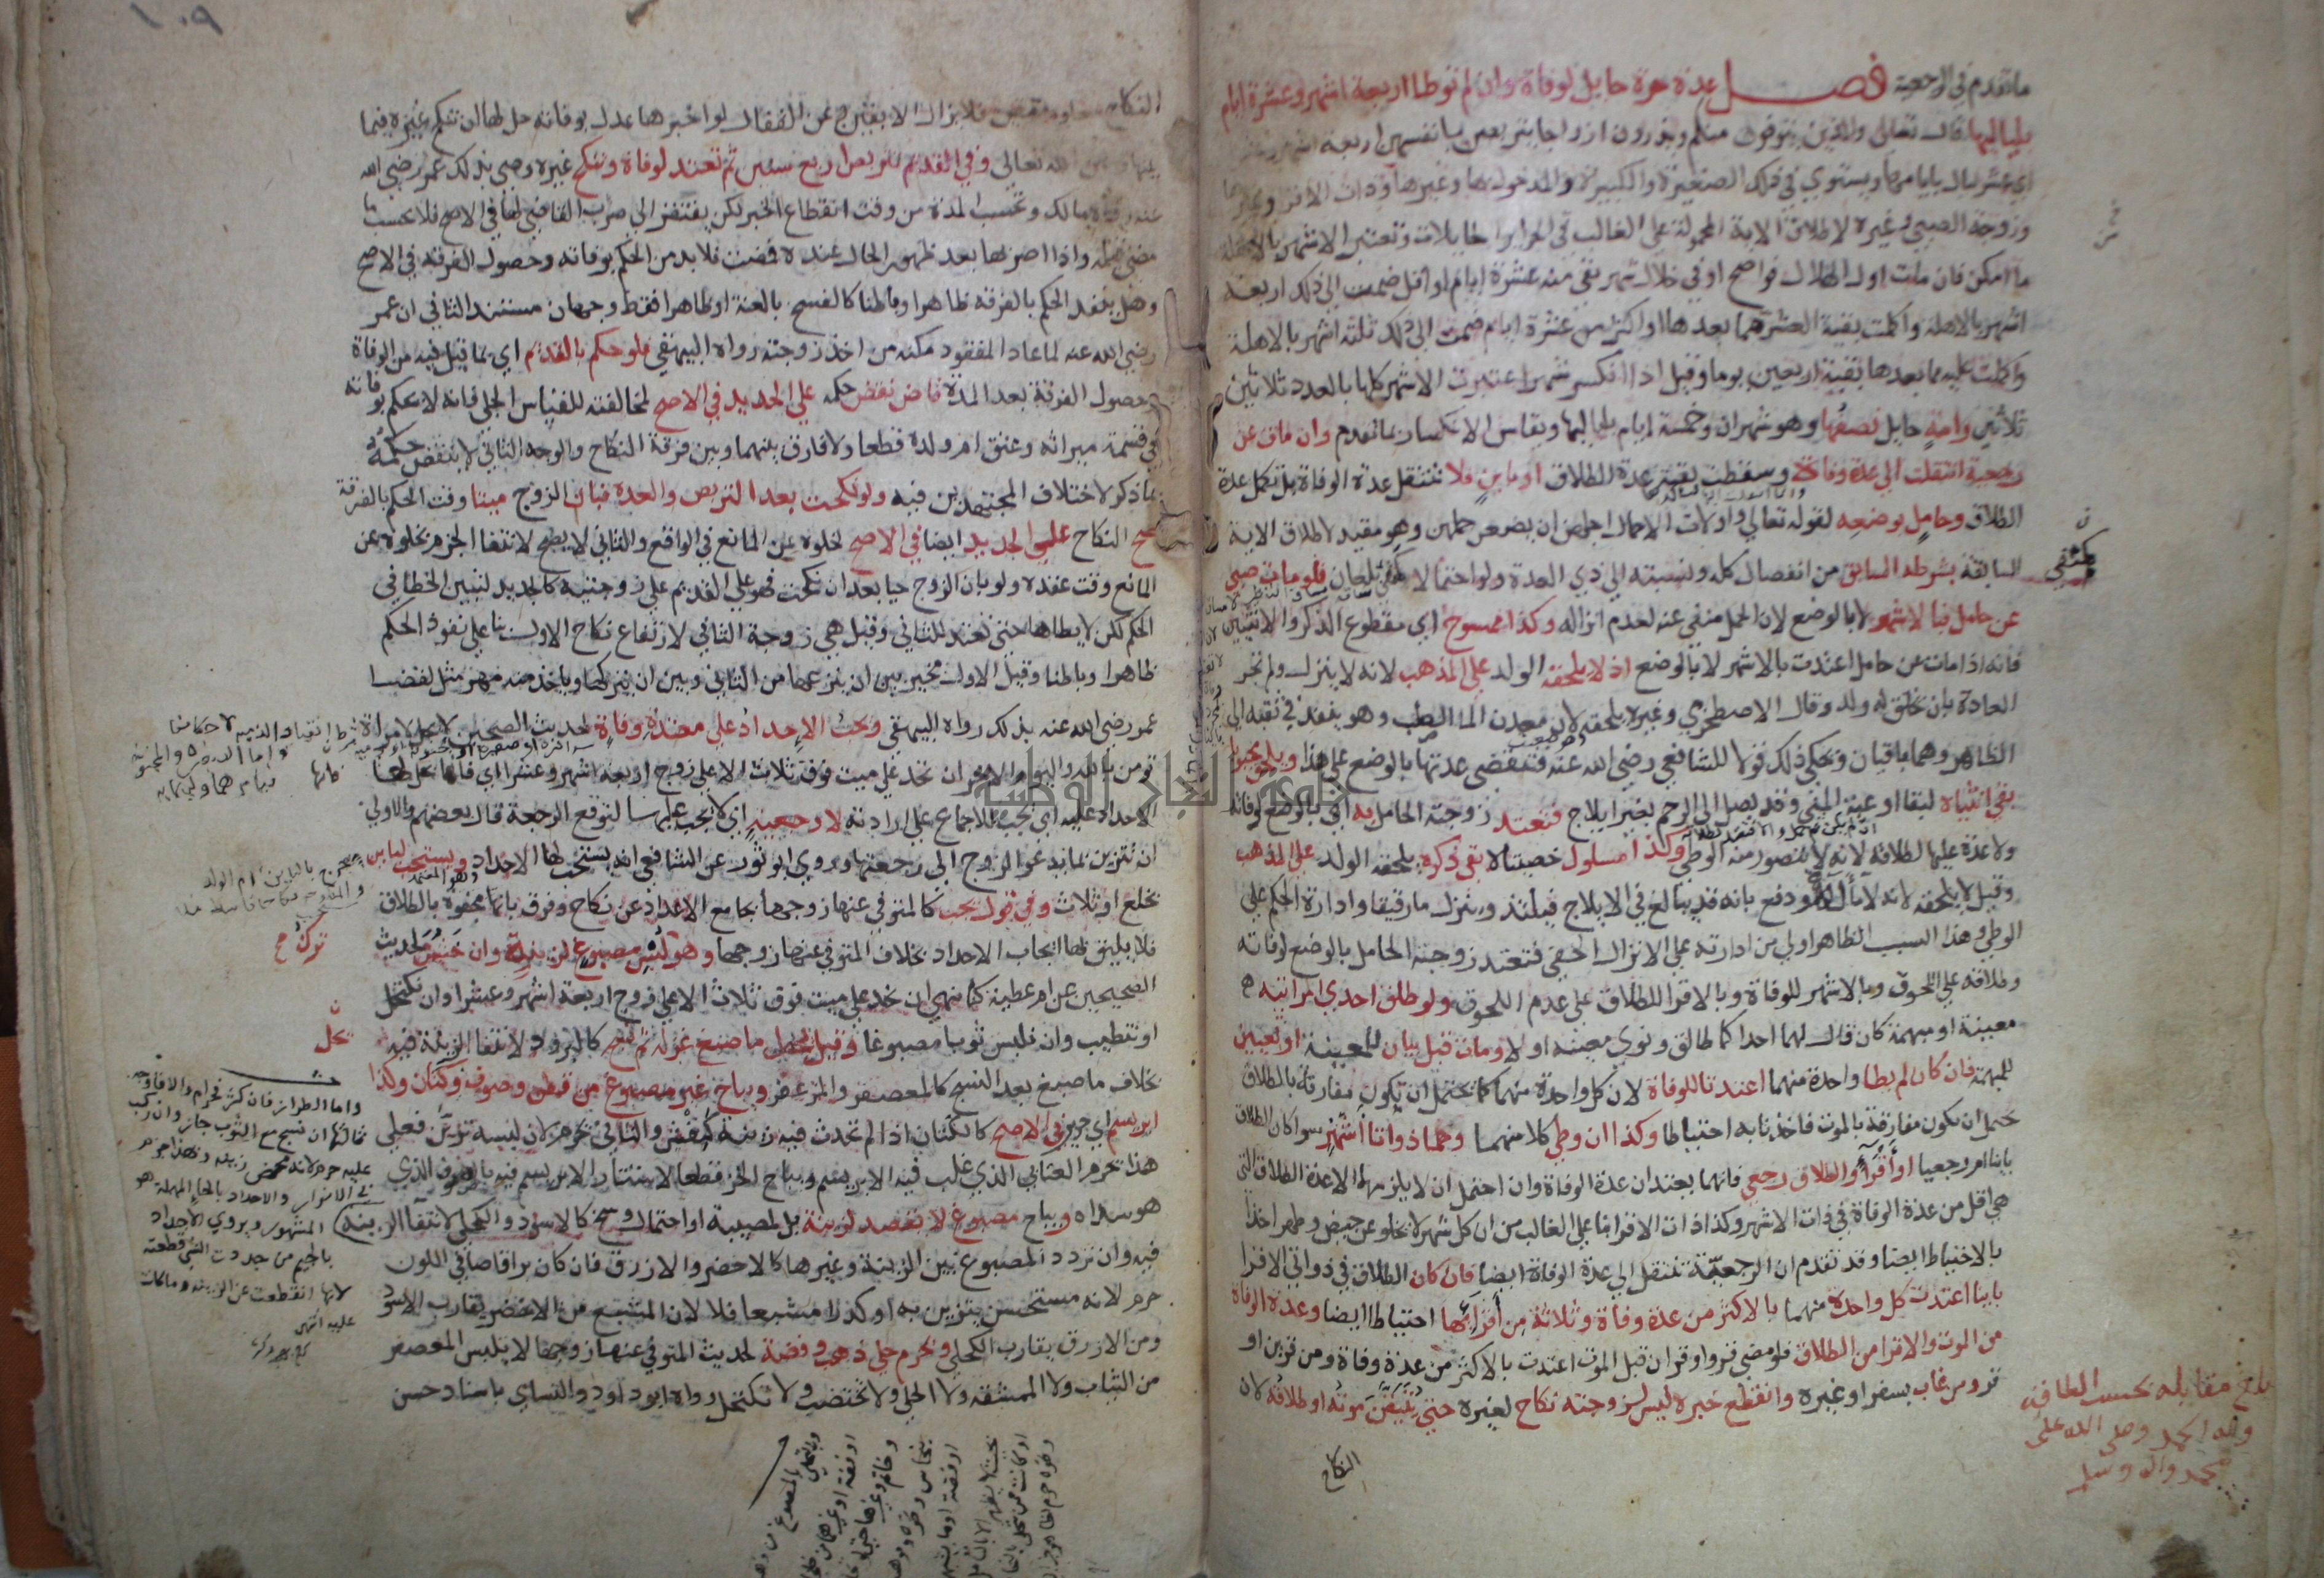 ما تقدم في الرجعة فصل عدة حرة حايل لوفاة وان لم توطا اربعة اشهر وعشرة ايام
بلياليها قال تعالى والذين يتوفون منكم ويذرون ازواجا يتربصن بانفسهن اربعة اشهر
اي عشر ليال بايامها ويستوي في ذلك الصغيرة والكبيرة والمدخول بها وغيرها وذات الاقرا وغيرها
وزوجة الصبي وغيره لاطلاق الاية المحمولة على الغالب في الحراير الحايلات وتعتبر الاشهر بالاهلة
ما امكن فان مات اول الهلال فواضح او في خلال شهر بقي منه عشرة ايام او اقل ضمت الى ذلك اربعة
اشهر بالاهلة واكملت بقية العشر مما بعدها او اكثر من عشرة ايام ضمت الى ذلك ثلثة اشهر بالاهلة
واكملت عليه مما بعدها بقية اربعين يوما وقيل اذا انكسر شهر اعتبرت الاشهر كلها بالعدد ثلاثين
ثلاثين وامة حايل نصفها وهو شهران وخمسة ايام بلياليها وتقاس الانكسار بما تقدم وان مات عن
رجعية انتقلت الى عدة وفاة وسقطت بقية عدة الطلاق او باين فلا تنتقل عدة الوفاة بل تكمل عدة
الطلاق وحامل بوضعه لقوله تعالى واولات الاحمال اجلهن ان يضعن حملهن وهو مقيد لاطلاق الاية
السابقة بشرطه السابق من انفصال كله ونسبته الى ذي العدة ولو احتمالا كمنفي بلعان فلو مات صبي
كمنفي
عن حامل فبالاشهر لا بالوضع لان الحمل منفي عنه لعدم انزاله وكذا ممسوح اي مقطوع الذكر والانثيين
فانه اذا مات عن حامل اعتدت بالاشهر لا بالوضع اذ لا يلحقه الولد على المذهب لانه لا ينزل ولم تجر
العادة بان يخلق له ولد وقال الاصطخري وغيره يلحقه لان معدن الما الصلب وهو ينفد في ثقبه الى
الظاهر وهما باقيان وحكي ذلك قولا للشافعي رضي الله عنه فتنقضي عدتها بالوضع على هذا ويلحق مجبوبا
بقي انثياه لبقا اوعية المني وقد يصل الى الرحم بغير ايلاج فتعتد زوجته الحامل به اي بالوضع لوفاته
ولا عدة عليها لطلاقه لانه لا يتصور منه الوطي وكذا مسلول خصيتاه بقي ذكره يلحقه الولد على المذهب
وقيل لا يلحقه لانه لا ما له ودفع بانه قد يبالغ في الايلاج فيلتذ وينزل ما رقيقا وادارة الحكم على
الوطي وهذا السبب الظاهر اولى من ادارته على الانزال الخفي فتعتد زوجته الحامل بالوضع لوفاته
وطلاقه على اللحوق وبالاشهر للوفاة وبالاقرا للطلاق على عدم اللحوق ولو طلق احدى امراتيه
معينة او مبهمة كان قال لهما احداكما طالق ونوى معينة او لا ومات قبل بيان للمعينة او تعيين
للمبهمة فان كان لم يطا واحدة منهما اعتدتا للوفاة لان كل واحدة منهما كما يحتمل ان تكون مفارقة بالطلاق
يحتمل ان تكون مفارقة بالموت فاخذنا به احتياطا وكذا ان وطي كلا منهما وهما ذواتا اشهر سوا كان الطلاق
باينا ام رجعيا او اقرا والطلاق رجعي فانهما يعتدان عدة الوفاة وان احتمل ان لا يلزمهما الا عدة الطلاق التي
هي اقل من عدة الوفاة في ذات الاشهر وكذا ذات الاقرا بنا على الغالب من ان كل شهر لا يخلو عن حيض وطهر اخذا
بالاحتياط ايضا وقد تقدم ان الرجعية تنتقل الى عدة الوفاة ايضا فان كان الطلاق في ذواتي الاقرا
باينا اعتدت كل واحدة منهما بالاكثر من عدة وفاة وثلاثة من اقرائها احتياطا ايضا وعدة الوفاة
من الموت والاقرا من الطلاق فلو مضى قرو او قران قبل الموت اعتدت بالاكثر من عدة وفاة ومن قرين او
قرو ومن غاب بسفر او غيره وانقطع خبره ليس لزوجته نكاح لغيره حتى يتيقن موته او طلاقه لان
النكاح
بلغ مقابلة بحسب الطاقة
ولله الحمد وصلى الله على
محمد واله وسلم
١٠٩
النكاح معلوم بيقين فلا يزال الا بيقين وعن القفال لو اخبرها عدل بوفاته حل لها ان تنكح غيره فيما
بينها وبين الله تعالى وفي القديم تتربص اربع سنين ثم تعتد لوفاة وتنكح غيره وقضى بذلك عمر رضي الله
عنه رواه مالك وتحسب المدة من وقت انقطاع الخبر لكن يفتقر الى ضرب القاضي لها في الاصح فلا يحسب ما
مضى قبله واذا ضربها بعد ظهور الحال عنده فمضت فلا بد من الحكم بوفاته وحصول الفرقة في الاصح
وهل ينفذ الحكم بالفرقة ظاهرا وباطنا كالفسخ بالعنة او ظاهرا فقط وجهان مستند الثاني ان عمر
رضي الله عنه لما عاد المفقود مكنه من اخذ زوجته رواه البيهقي فلو حكم بالقديم اي بما قيل فيه من الوفاة
وحصول الفرقة بعد المدة قاض نقض حكمه على الجديد في الاصح لمخالفته للقياس الجلي فانه لا يحكم بوفاته
في قسمة ميراثه وعتق ام ولده قطعا ولا فارق بينهما وبين فرقة النكاح والوجه الثاني لا ينقض حكمه
بما ذكر لاختلاف المجتهدين فيه ولو نكحت بعد التربص والعدة فبان الزوج ميتا وقت الحكم بالفرقة
صح النكاح على الجديد ايضا في الاصح لخلوه عن المانع في الواقع والثاني لا يصح لانتفا الجزم بخلوه عن
المانع وقت عقده ولو بان الزوج حيا بعد ان نكحت فهو على القديم على زوجيته كالجديد لتبين الخطا في
الحكم لكن لا يطاها حتى تعتد للثاني وقيل هي زوجة الثاني لارتفاع نكاح الاول بنا على نفوذ الحكم
ظاهرا وباطنا وقيل الاول مخير بين ان ينزعها من الثاني وبين ان يتركها وياخذ منه مهر مثل لقضا
عمر رضي الله عنه بذلك رواه البيهقي ويجب الاحداد على معتدة وفاة لحديث الصحيحين لا يحل لامراة
تومن بالله واليوم الاخر ان تحد على ميت فوق ثلاث الا على زوج اربعة اشهر وعشرا اي فانه يحل لها
الاحداد عليه اي يجب للاجماع على ارادته لا رجعية اي لا يجب عليها لتوقع الرجعة قال بعضهم والاولى
ان تتزين بما يدعو الزوج الى رجعتها وروى ابو ثور عن الشافعي انه يستحب لها الاحداد ويستحب لباين
بخلع او ثلاث وفي قول يجب كالمتوفى عنها زوجها بجامع الاعتداد عن نكاح وفرق بانها مجفوة بالطلاق
فلا يليق بها ايجاب الاحداد بخلاف المتوفى عنها زوجها وهو ترك لبس مصبوغ لزينة وان خشن لحديث
الصحيحين عن ام عطية كنا ننهى ان نحد على ميت فوق ثلاث الا على زوج اربعة اشهر وعشرا وان نكتحل
او نتطيب وان نلبس ثوبا مصبوغا وقيل يحل ما صبغ غزله ثم نسج كالبرود لانتفا الزينة فيه
بخلاف ما صبغ بعد النسج كالمعصفر والمزعفر ويباح غير مصبوغ من قطن وصوف وكتان وكذا
ابريسم اي حرير في الاصح كالكتان اذا لم تحدث فيه زينة كنقش والثاني يحرم لان لبسه تزين فعلى
هذا يحرم العتابي الذي غلب فيه الابريسم ويباح الخز قطعا لاستتار الابريسم فيه بالصوف الذي
هو سداه ويباح مصبوغ لا تقصد لزينة بل لمصيبة او احتمال وسخ كالاسود والكحلي لانتفا الزينة
فيه وان تردد المصبوغ بين الزينة وغيرها كالاخضر والازرق فان كان براقا صافي اللون
حرم لانه مستحسن يتزين به او كدرا مشبعا فلا لان المشبع من الاخضر يقارب الاسود
ومن الازرق يقارب الكحلي ويحرم حلي ذهب وفضة لحديث المتوفى عنها زوجها لا تلبس المعصفر
من الثياب ولا الممشقة ولا الحلي ولا تختضب ولا تكتحل رواه ابو داود والنساي باسناد حسن
ترك صح
يحل
واما الطراز فان كثر فحرام والا فاوجه
ثالثها ان نسج مع الثوب جاز وان ركب
عليه حرم لانه محض زينة
والاحداد بالحا المهملة هو
المشهور ويروى الاجداد
بالجيم من جددت الشي قطعته
لانها انقطعت عن الزينة وما كانت
عليه انتهى
جامعة النجاح الوطنية